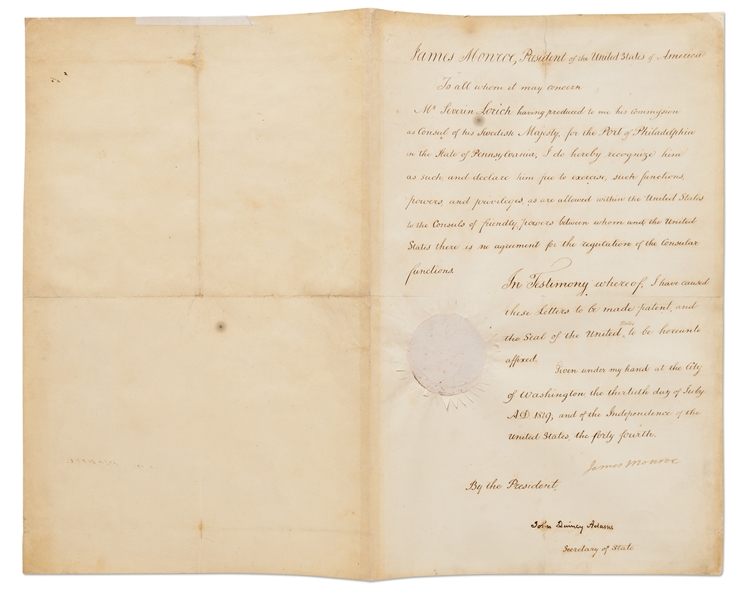 James Monroe, President of the United States of America
To all whom it may concern
Mr Severin Lorich having produced to me his commission
as Consul of his Swedish Majesty, for the Port of Philadelphia
in the State of Pennsylvania, I do hereby recognize him
as such, and declare him free to exercise, such functions,
powers, and privileges, as are allowed within the United States
to the Consuls of friendly powers between whom and the United
States there is no agreement for the regulation of the Consular
functions.
In Testimony whereof, I have caused
these Letters to be made patent, and
the Seal of the United States to be hereunto
affixed.
Given under my hand at the City
of Washington the thirtieth day of July
AD 1819, and of the Independence of the
United States, the forty fourth.
James Monroe
By the President,
John Quincy Adams
Secretary of State